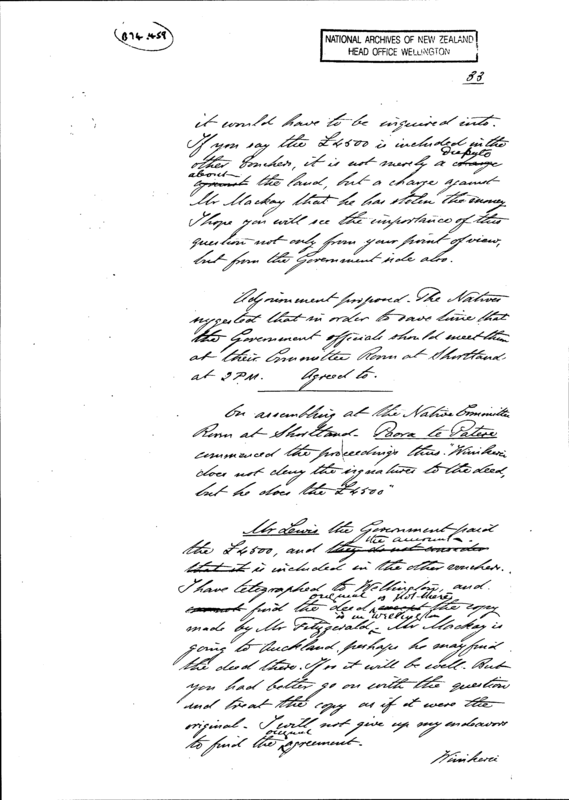 B74.458
NATIONAL ARCHIVES OF NEW ZEALAND
HEAD OFFICE WELLINGTON
33
it would have to be inquired into.
If you say the £4500 is included in the
other vouchers, it is not merely a charge dispute
against about the land, but a charge against
Mr Mackay that he has stolen the money.
I hope you will see the importance of this
question not only from your point of view,
but from the Government side also.
Adjournment proposed. The Natives
suggested that in order to save time that
the Government officials should meet them
at their Committee Room at Shortland
at 2 PM. Agreed to.
On assembling at the Native Committee
Room at Shortland. Paora te
commenced the proceedings thus. "Wirikeri
does not deny the signatures to the deed,
but he does the £4500"
Mr Lewis the Government paid
the amount
the £4500, and they do not consider
that it is included in the other vouchers.
I have telegraphed to Wellington, and
original is not there
cannot find the deed except the copy
is in Wellington
made by Mr Fitzgerald. Mr Mackay is
going to Auckland, perhaps he may find
the deed there. If so it will be well. But
you had better go on with the question
and treat the copy as if it were the
original. I will not give up my endeavors
to find the original agreement.